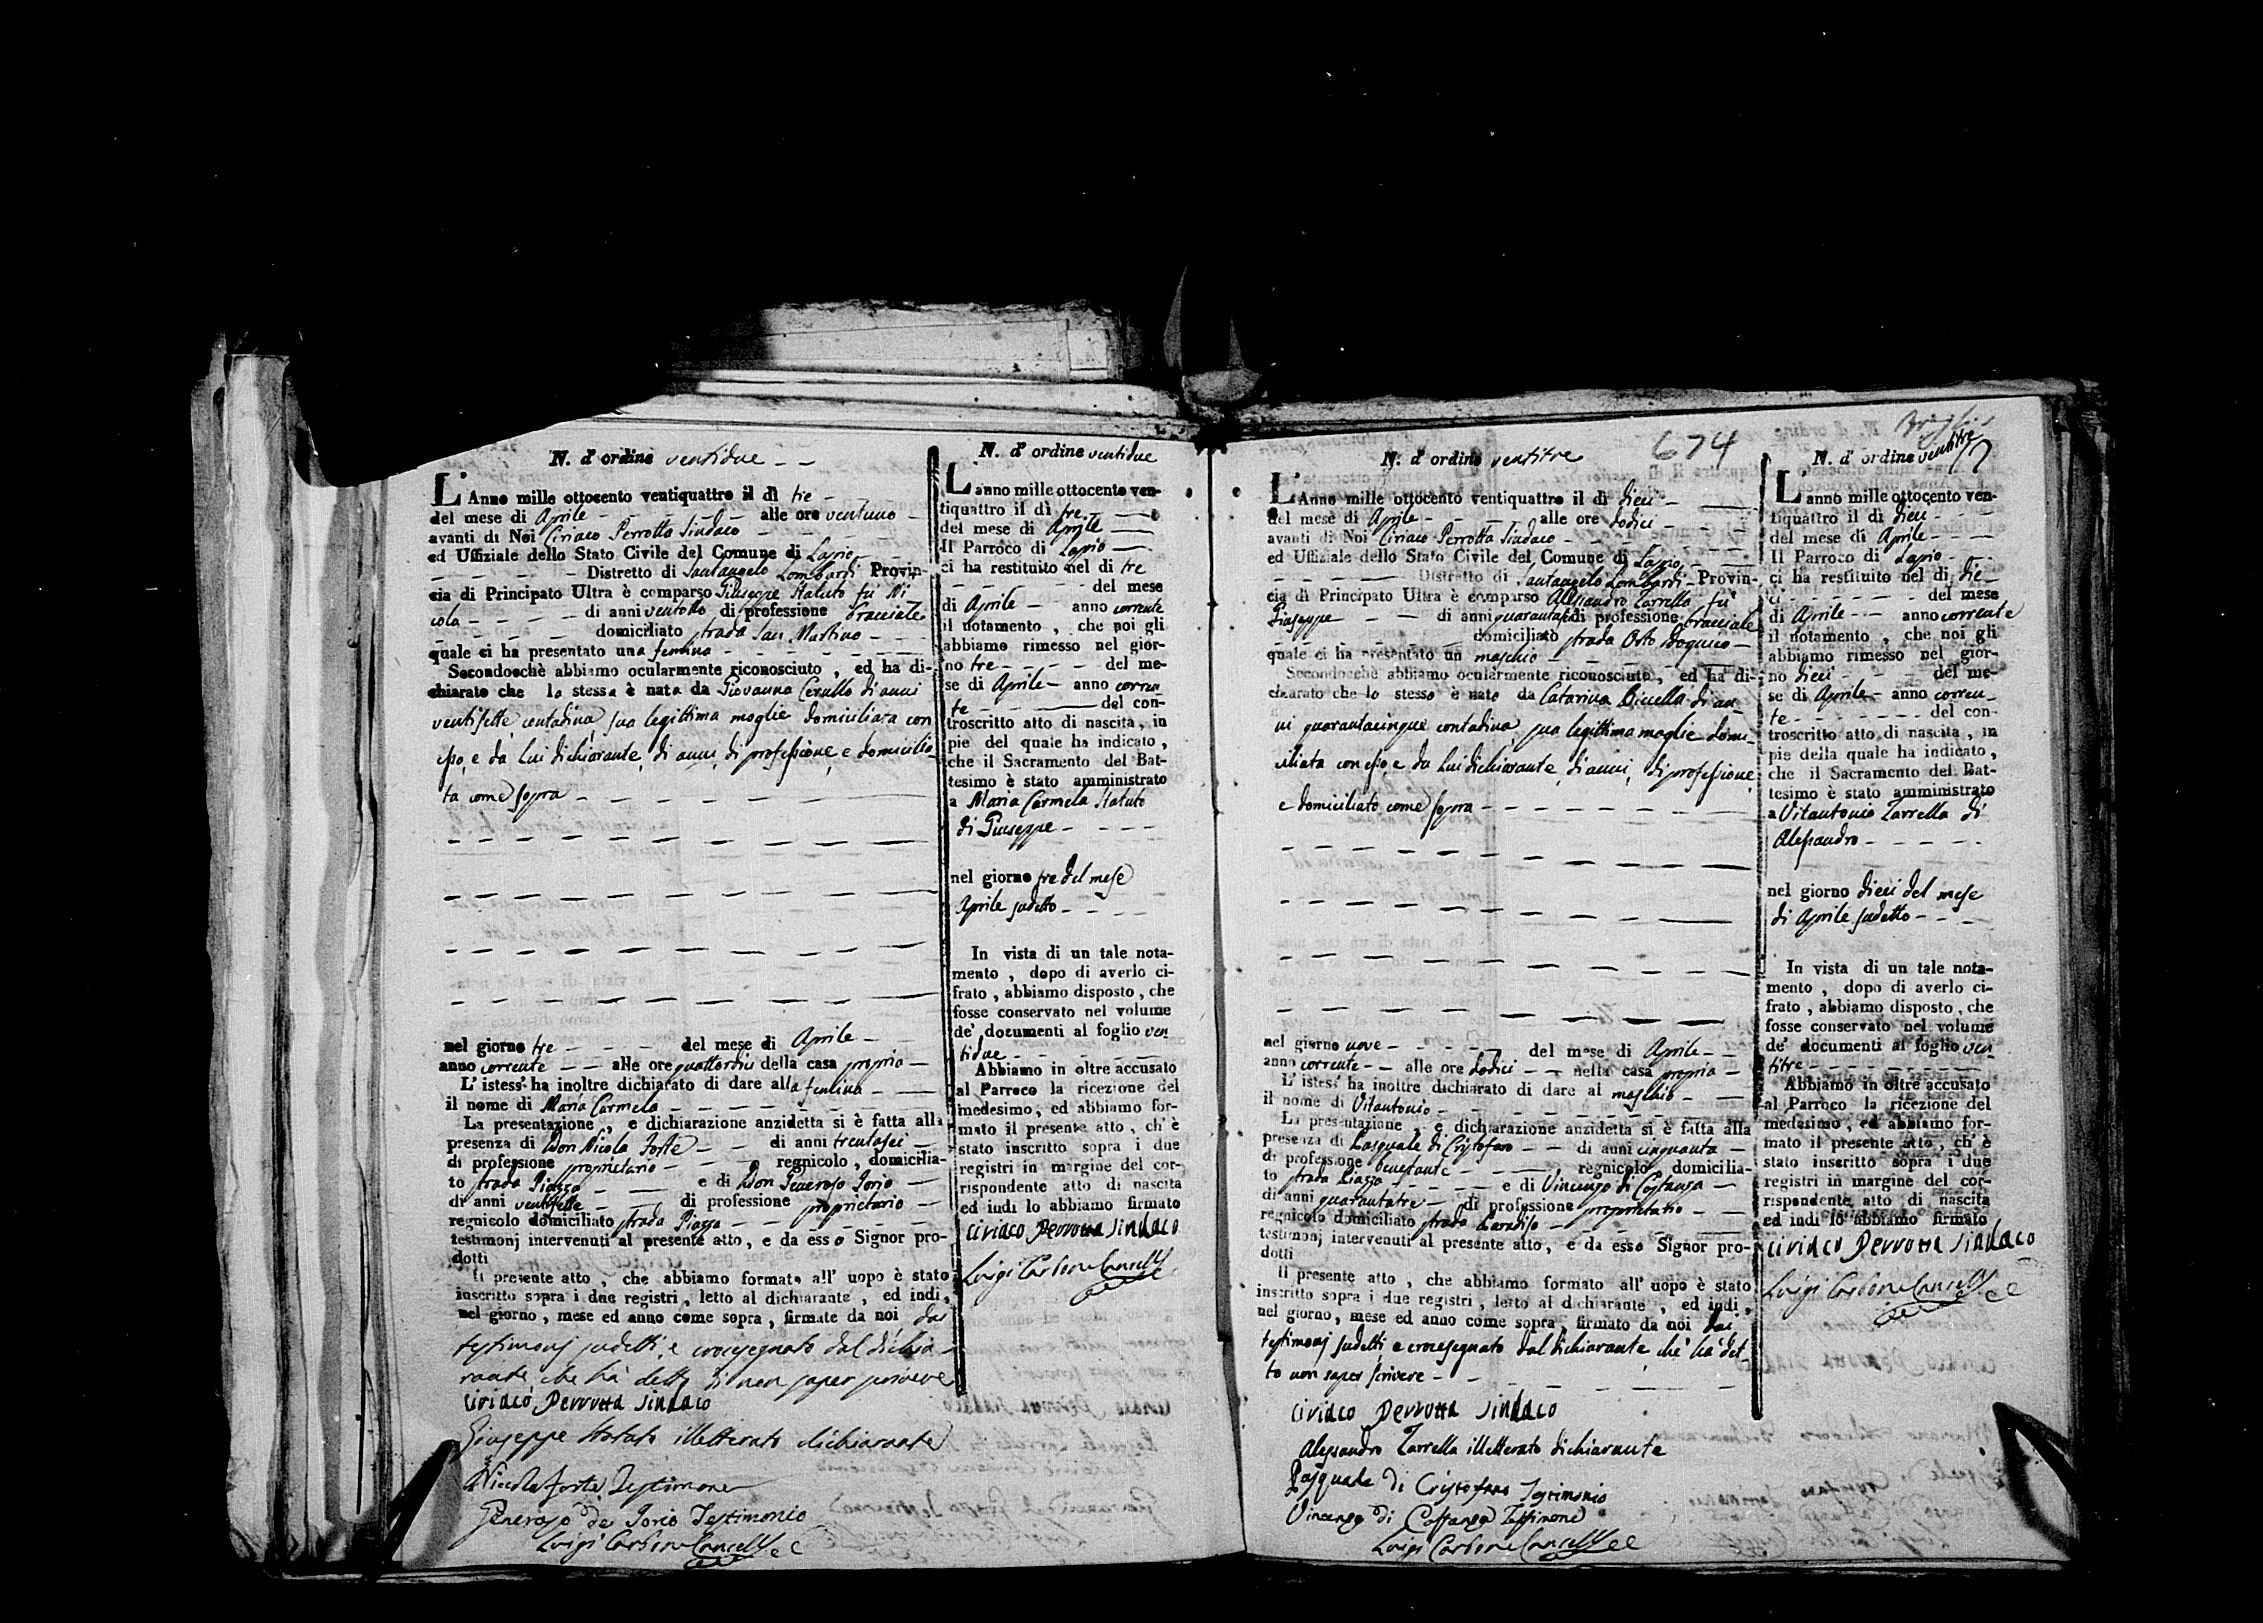 N. d' ordine ventidue
L' Anno mille ottocento ventiquattro il dì tre
del mese di Aprile alle ore ventuno
avanti di Noi Ciriaco Perrotta Sindaco
ed Uffiziale dello Stato Civile del Comune di Lapio
Distretto di Santangelo Lombardi Provin-
cia di Principato Ultra è comparso Giuseppe Statuto fu Ni
cola di anni ventotto di professione bracciale
domiciliato strada San Martino
quale ci ha presentato una femina
Secondochè abbiamo ocularmente riconosciuto, ed ha di-
chiarato che la stessa è nata da Giovanna Cerullo di anni
ventisette contadina, sua legittima moglie domiciliata con
esso, e da lui dichiarante, di anni, di professione, e domicilia-
ta come sopra
nel giorno tre del mese di Aprile
anno corrente alle ore quattordici della casa propria
L' istess' ha inoltre dichiarato di dare alla femina
il nome di Maria Carmela
La presentazione, e dichiarazione anzidetta si è fatta alla
presenza di Don Nicola Forte di anni trentasei
di professione proprietario regnicolo, domicilia-
to strada Piazza e di Don Generoso Iorio
di anni ventisette di professione proprietario
regnicolo domiciliato strada Piazza
testimonj intervenuti al presente atto, e da esso Signor pro-
dotti
Il presente atto, che abbiamo formato all' uopo è stato
inscritto sopra i due registri, letto al dichiarante, ed indi,
nel giorno, mese ed anno come sopra, firmate da noi dai
testimonj sudetti, e crocesegnato dal dichia-
rante che ha detto di non saper scrivere
Ciriaco Perrotta Sindaco
Giuseppe Statuto illetterato dichiarante
Nicola Forte Testimone
Generoso de Iorio Testimonio
Luigi Carbone Cancelle
N. d' ordine ventidue
L' anno mille ottocento ven-
tiquattro il dì tre
del mese di Aprile
Il Parroco di Lapio
ci ha restituito nel dì tre
del mese
di Aprile anno corrente
il notamento, che noi gli
abbiamo rimesso nel gior-
no tre del me-
se di Aprile anno corren
te del con-
troscritto atto di nascita, in
pie del quale ha indicato,
che il Sacramento del Bat-
tesimo è stato amministrato
a Maria Carmela Statuto
di Giuseppe
nel giorno tre del mese
Aprile sudetto
In vista di un tale nota-
mento, dopo di averlo ci-
frato, abbiamo disposto, che
fosse conservato nel volume
de' documenti al foglio ven
tidue
Abbiamo in oltre accusato
al Parroco la ricezione del
medesimo, ed abbiamo for-
mato il presente atto, ch' è
stato inscritto sopra i due
registri in margine del cor-
rispondente atto di nascita
ed indi lo abbiamo firmato
Ciriaco Perrotta Sindaco
Luigi Carbone Cancelle
674
N. d' ordine ventitre
L' Anno mille ottocento ventiquattro il dì dieci
del mese di Aprile alle ore dodici
avanti di Noi Ciriaco Perrotta Sindaco
ed Uffiziale dello Stato Civile del Comune di Lapio
Distretto di Santangelo Lombardi Provin-
cia di Principato Ultra è comparso Alessandro Zarrella fu
Giuseppe di anni di professione bracciale
domiciliato strada Orto
quale ci ha presentato un maschio
Secondochè abbiamo ocularmente riconosciuto, ed ha di-
chiarato che lo stesso è nato da Catarina di an-
ni quarantacinque contadina, sua legittima moglie domi-
ciliata con esso, e da lui dichiarante, di anni, di professione,
e domiciliato come sopra
nel giorno nove del mese di Aprile
anno corrente alle ore dodici nella casa propria
L' istess' ha inoltre dichiarato di dare al maschio
il nome di Vitantonio
La presentazione, e dichiarazione anzidetta si è fatta alla
presenza di Pasquale di Cristofano di anni cinquanta
di professione benestante regnicolo domicilia-
to strada Piazza e di Vincenzo di Costanza
di anni quarantatre di professione proprietario
regnicolo domiciliato strada Paradiso
testimonj intervenuti al presente atto, e da esso Signor pro-
dotti
Il presente atto, che abbiamo formato all' uopo è stato
inscritto sopra i due registri, letto al dichiarante, ed indi,
nel giorno, mese ed anno come sopra, firmato da noi dai
testimonj sudetti, e crocesegnato dal dichiarante, che ha det-
to non saper scrivere
Ciriaco Perrotta Sindaco
Alessandro Zarrella illetterato dichiarante
Pasquale di Cristofano Testimonio
Vincenzo di Costanza Testimone
Luigi Carbone Cancelle
N. d' ordine ventitre
L' anno mille ottocento ven-
tiquattro il dì dieci
del mese di Aprile
Il Parroco di Lapio
ci ha restituito nel dì die-
ci del mese
di Aprile anno corrente
il notamento, che noi gli
abbiamo rimesso nel gior-
no dieci del me-
se di Aprile anno corren-
te del con-
troscritto atto di nascita, in
pie della quale ha indicato,
che il Sacramento del Bat-
tesimo è stato amministrato
a Vitantonio Zarrella di
Alessandro
nel giorno dieci del mese
di Aprile sudetto
In vista di un tale nota-
mento, dopo di averlo ci-
frato, abbiamo disposto, che
fosse conservato nel volume
de' documenti al foglio ven
titre
Abbiamo in oltre accusato
al Parroco la ricezione del
medesimo, ed abbiamo for-
mato il presente atto, ch' è
stato inscritto sopra i due
registri in margine del cor-
rispondente atto di nascita
ed indi lo abbiamo firmato
Ciriaco Perrotta Sindaco
Luigi Carbone Cancelle